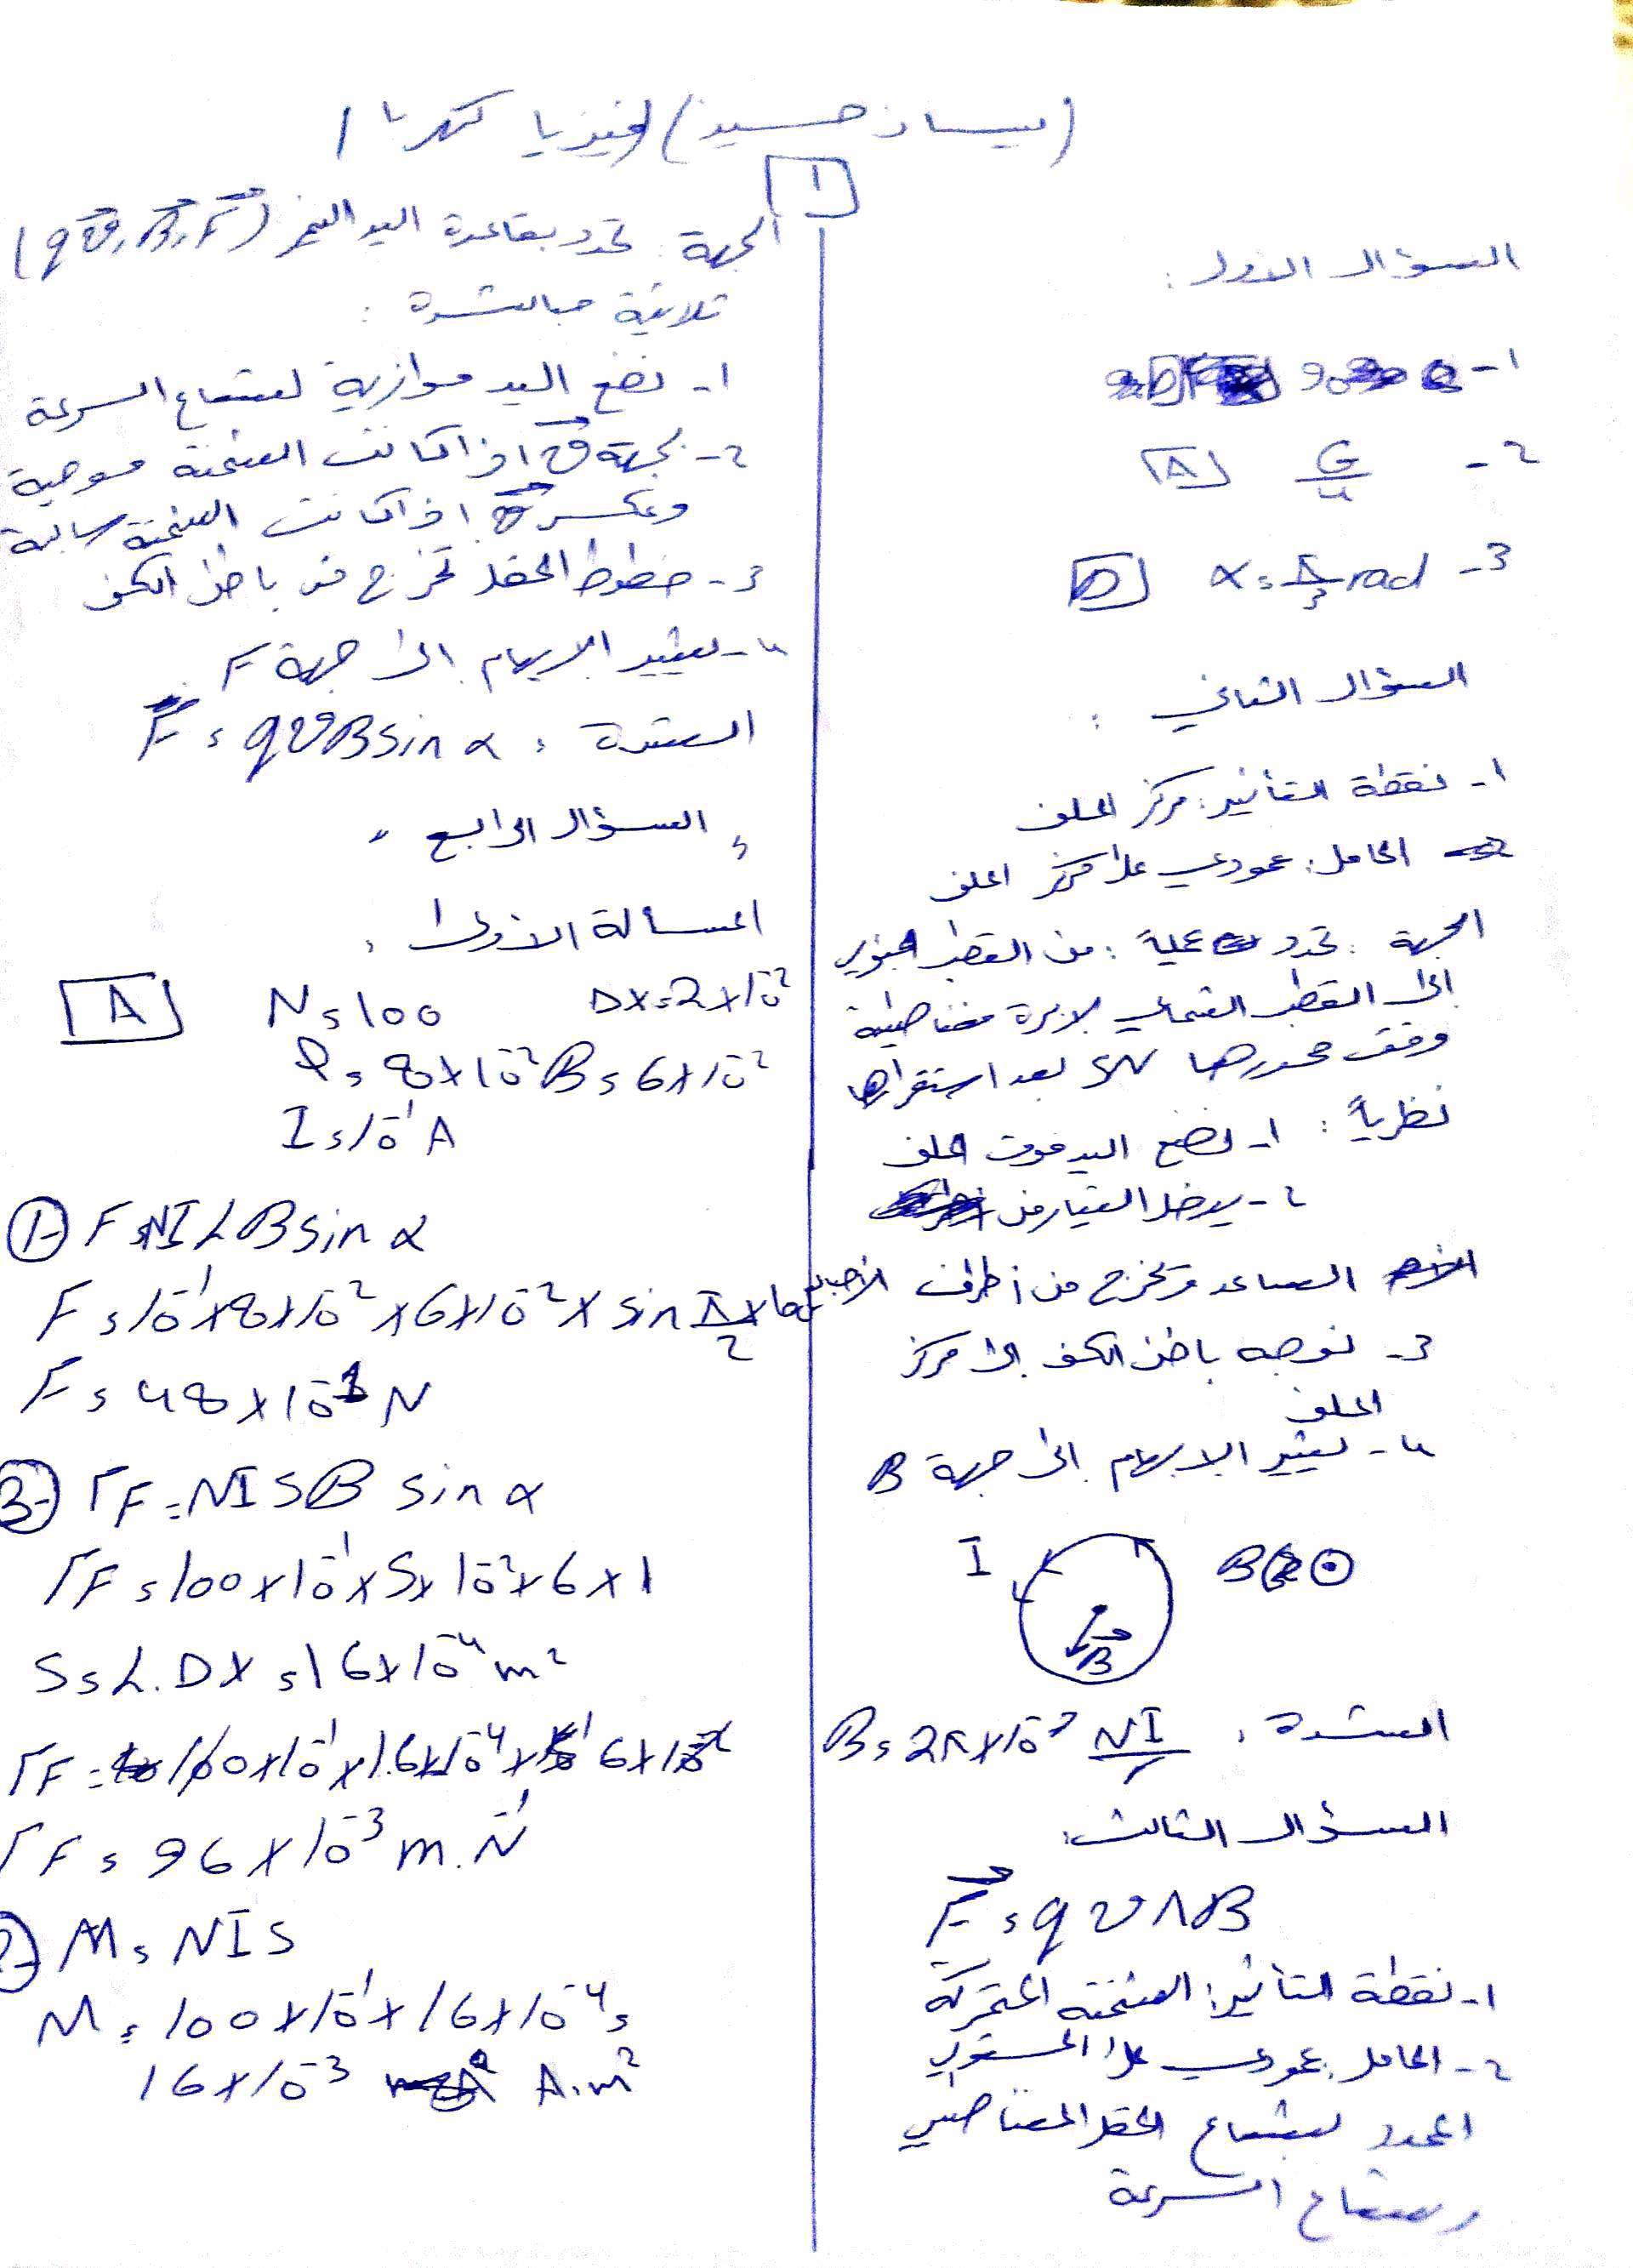 (ميساء حسين) فيزيا كهربا
1
السؤال الاول :
1-
2- G/4 [A]
3- α = π/2 rad [D]
السؤال الثاني :
1- نقطة التأثير: مركز الملف
الحامل: عمودي على مركز الملف
الجهة : تحدد عملياً : من القطب الجنوبي
الى القطب الشمالي لابرة مغناطيسية
وفق محورها SN بعد استقرارها
نظرياً : 1- نضع اليد فوق الملف
2- يدخل التيار من
الساعد وتخرج من أطراف الأصابع
3- نوجه باطن الكف الى مركز
الملف
4- يشير الابهام الى جهة B
I B ⊙
B
الشدة : B = 2π×10⁻⁷ NI/r
السؤال الثالث:
F = q v ∧ B
1- نقطة التأثير: الشحنة المتحركة
2- الحامل: عمودي على المستوي
المحدد بشعاع الحقل المغناطيسي
وشعاع السرعة
الجهة : تحدد بقاعدة اليد اليمنى (qv, B, F)
ثلاثية مباشرة :
1- نضع اليد موازية لشعاع السرعة
2- بجهة v اذا كانت الشحنة موجبة
وعكس v اذا كانت الشحنة سالبة
3- خطوط الحقل تخرج من باطن الكف
4- يشير الابهام الى جهة F
الشدة : F = qvB sin α
السؤال الرابع
المسألة الاولى :
[A] N = 100 DX = 2×10⁻²
L = 8×10⁻² B = 6×10⁻²
I = 10⁻¹ A
1- F = NILB sin α
F = 10⁻¹×8×10⁻²×6×10⁻²× sin π/2 × 100
F = 48×10⁻³ N
3- ΓF = NISB sin α
ΓF = 100×10⁻¹×S×10⁻²×6×1
S = L.DX = 16×10⁻⁴ m²
ΓF = 100×10⁻¹×1.6×10⁻⁴× 6×10⁻²
ΓF = 96×10⁻³ m.N
2- M = NIS
M = 100×10⁻¹×16×10⁻⁴ =
16×10⁻³ A.m²